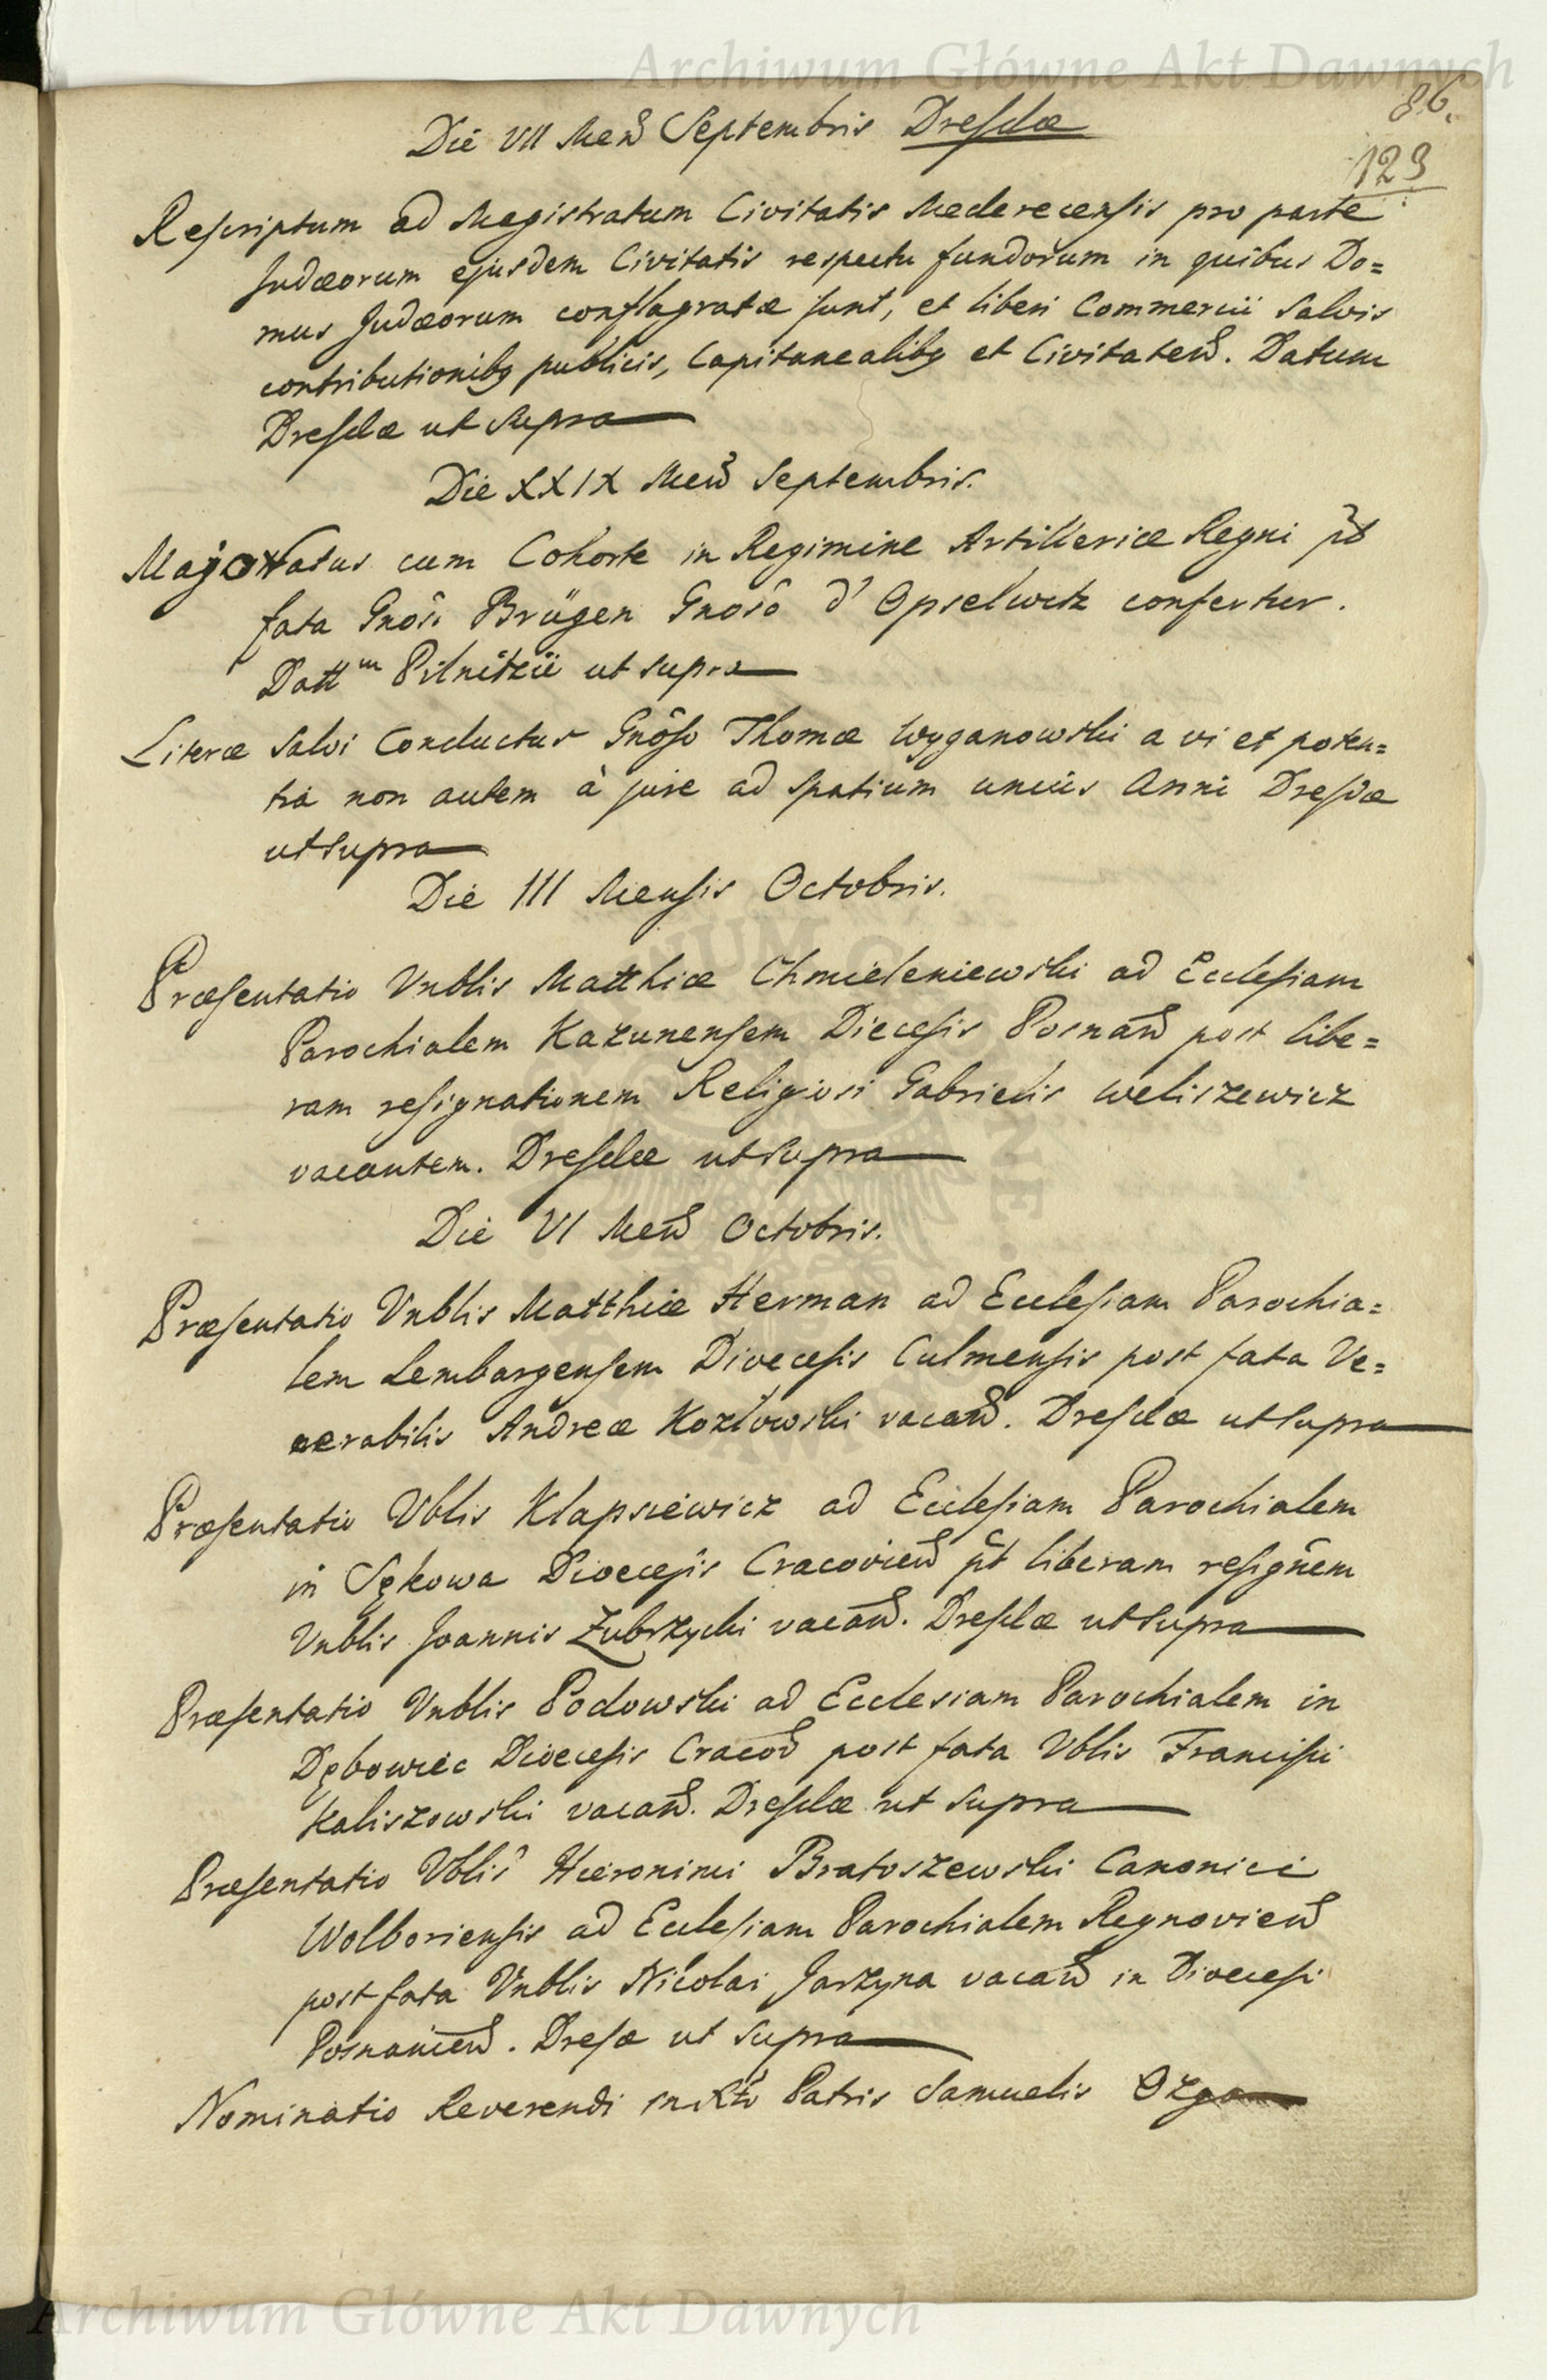 Archiwum Główne Akt Dawnych
86.
123
Die VII Mens Septembris Dresdæ
Rescriptum ad Magistratum Civitatis Mederecensis pro parte
Judæorum ejusdem Civitatis respectu fundorum in quibus Do=
mus Judæorum conflagratæ sunt, et liberi Commercii Salvis
contributionibq publicis, Capitanealibq et Civitatens. Datum
Dresdæ ut Supra
Die XXIX Mens Septembris.
Majoratus cum Cohorte in Regimine Artilleriæ Regni pt
fata Gnosi Brügen Gnoso d' Opselwitz confertur.
Datt m Pilnitzii ut supra
Literæ Salvi Conductus Gnoso Thomæ Wyganowski a vi et poten=
tia non autem à jure ad spatium unius Anni Dresdæ
ut supra
Die III Mensis Octobris.
Præsentatio Vnblis Matthiæ Chmieleniewski ad Ecclesiam
Parochialem Kazunensem Diecesis Posnans post libe=
ram resignationem Religiosi Gabrielis Weliszewicz
vacantem. Dresdæ ut Supra
Die VI Mens Octobris.
Præsentatio Vnblis Matthiæ Herman ad Ecclesiam Parochia=
lem Lembargensem Dioecesis Culmensis post fata Ve=
nerabilis Andreæ Kozłowski vacans. Dresdæ ut Supra
Præsentatio Vblis Klapsiewicz ad Ecclesiam Parochialem
in Sękowa Dioecesis Cracoviens pt liberam resignem
Vnblis Joannis Zubrzycki vacans. Dresdæ ut Supra
Præsentatio Vnblis Podowski ad Ecclesiam Parochialem in
Dębowiec Dioecesis Cracov post fata Vblis Francisci
Kaliszowski vacans. Dresdæ ut Supra
Præsentatio Vblis Hieronimi Bratoszewski Canonici
Wolboriensis ad Ecclesiam Parochialem Regnoviens
post fata Vnblis Nicolai Jarzyna vacans in Dioecesi
Posnaniens. Dresæ ut Supra
Nominatio Reverendi in Patris Samuelis Ozga
Archiwum Główne Akt Dawnych